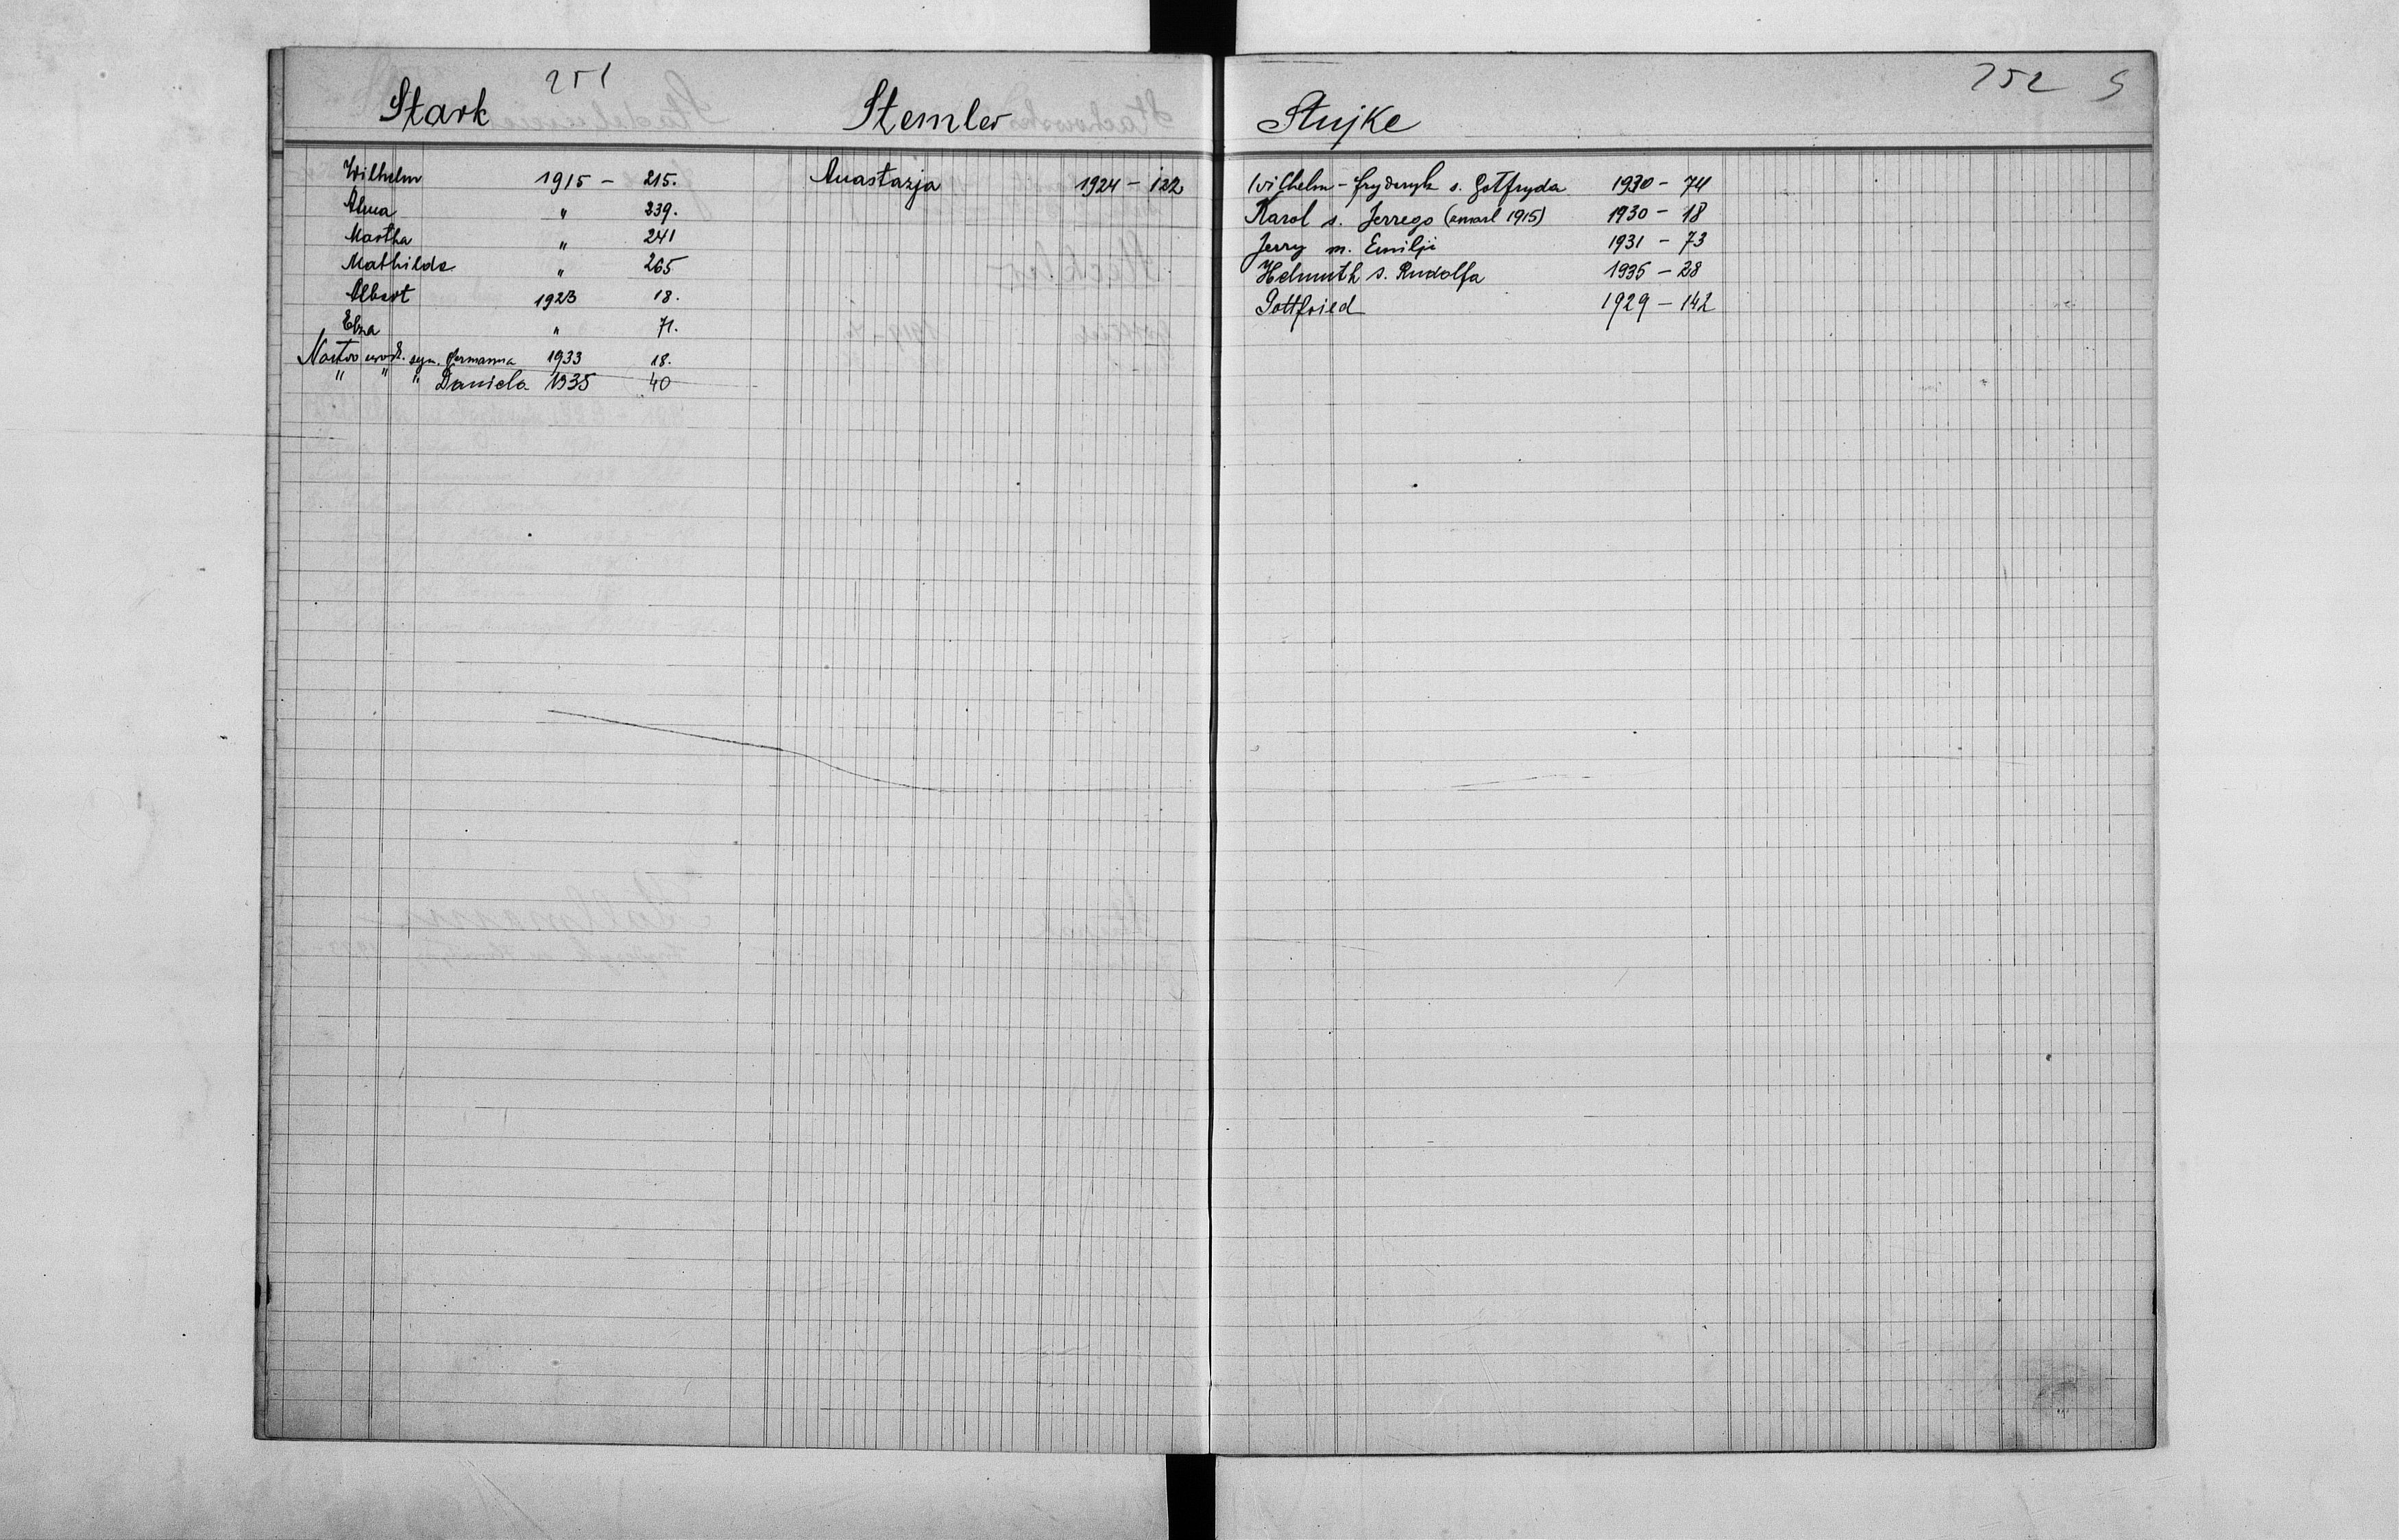 251
Stark
Wilhelm 1915 - 215.
Alma " 239.
Martha " 241
Mathilde " 265
Albert 1923 18.
Elza " 71.
Martwo urodz. syn. Hermanna 1933 18.
" " " Daniela 1935 40
Stemler
Anastazja 1924 - 122
252 S
Stujke
Wilhelm - Fryderyk s. Gotfryda 1930 - 74
Karol s. Jerzego (zmarł 1915) 1930 - 18
Jerzy m. Emilji 1931 - 73
Helmuth s. Rudolfa 1935 - 28
Gottfried 1929 - 142